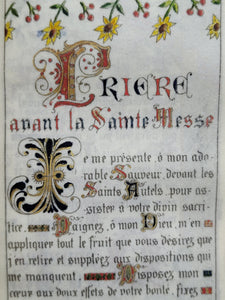 PRIERE
avant la Sainte Messe
Je me présente, ô mon ado-
rable Sauveur, devant les
Saints Autels, pour as-
sister à votre divin sacri-
fice. Daignez, ô mon Dieu, m'en
appliquer tout le fruit que vous désirez que
j'en retire et suppléez aux dispositions qui
me manquent. Disposez mon
cœur aux doux effets de votre bonté, fixez